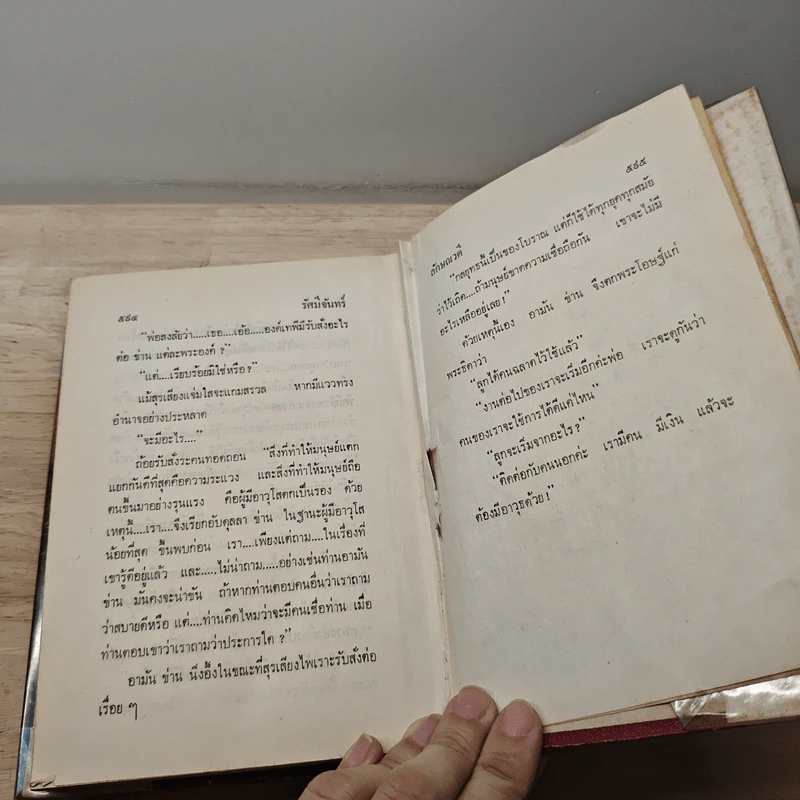 ๕๙๔ รัศมีจันทร์
"พ่อสงสัยว่า....เธอ....เอ้อ.....องค์เทพีมีรับสั่งอะไร
ต่อ ข่าน แต่ละพระองค์ ?"
"แต่....เรียบร้อยมิใช่หรือ?"
แม้สุรเสียงแจ่มใสจะแกมสรวล หากมีแววทรง
อำนาจอย่างประหลาด
"จะมีอะไร...."
ถ้อยรับสั่งระคนทอดถอน "สิ่งที่ทำให้มนุษย์แตก
แยกกันดีที่สุดคือความระแวง และสิ่งที่ทำให้มนุษย์ถือ
ตนขึ้นมาอย่างรุนแรง คือผู้มีอาวุโสตกเป็นรอง ด้วย
เหตุนี้....เรา....จึงเรียกอับดุลลา ข่าน ในฐานะผู้มีอาวุโส
น้อยที่สุด ขึ้นพบก่อน เรา....เพียงแต่ถาม....ในเรื่องที่
เขารู้ดีอยู่แล้ว และ.....ไม่น่าถาม.....อย่างเช่นท่านอามัน
ข่าน มันคงจะน่าขัน ถ้าหากท่านตอบคนอื่นว่าเราถาม
ว่าสบายดีหรือ แต่....ท่านคิดไหมว่าจะมีคนเชื่อท่าน เมื่อ
ท่านตอบเขาว่าเราถามว่าประการใด ?"
อามัน ข่าน นิ่งอึ้งในขณะที่สุรเสียงไพเราะรับสั่งต่อ
เรื่อย ๆ
๕๙๕
ลักษณวดี
"กลยุทธนี้เป็นของโบราณ แต่ก็ใช้ได้ทุกยุคทุกสมัย
ว่าไว้เถิด....ถ้ามนุษย์ขาดความเชื่อถือกัน เขาจะไม่มี
อะไรเหลืออยู่เลย!"
ด้วยเหตุนี้เอง อามัน ข่าน จึงตกพระโอษฐ์แก่
พระธิดาว่า
"ลูกได้คนฉลาดไว้ใช้แล้ว"
"งานต่อไปของเราจะเริ่มอีกค่ะพ่อ เราจะดูกันว่า
คนของเราจะใช้การได้ดีแค่ไหน"
"ลูกจะเริ่มจากอะไร?"
"ติดต่อกับคนนอกค่ะ เรามีคน มีเงิน แล้วจะ
ต้องมีอาวุธด้วย!"